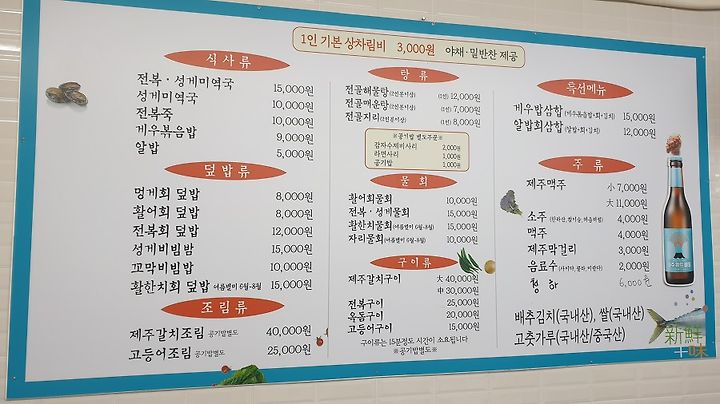 1인 기본 상차림비 3,000원 야채·밑반찬 제공
식사류
전복·성게미역국 15,000원
성게미역국 10,000원
전복죽 10,000원
게우볶음밥 9,000원
알밥 5,000원
덮밥류
멍게회 덮밥 8,000원
활어회 덮밥 8,000원
전복회 덮밥 12,000원
성게비빔밥 15,000원
꼬막비빔밥 10,000원
활한치회 덮밥 여름별미 6월-8월 15,000원
조림류
제주갈치조림 공기밥별도 40,000원
고등어조림 공기밥별도 25,000원
탕류
전골해물탕(2인분이상) (1인) 12,000원
전골매운탕(2인분이상) (1인) 7,000원
전골지리(2인분이상) (1인) 8,000원
※공기밥 별도주문※
감자수제비사리 2,000원
라면사리 1,000원
공기밥 1,000원
물회
활어회물회 10,000원
전복·성게물회 15,000원
활한치물회(여름별미 6월-8월) 15,000원
자리물회(여름별미 6월-8월) 10,000원
구이류
제주갈치구이 大 40,000원
中 30,000원
전복구이 25,000원
옥돔구이 20,000원
고등어구이 15,000원
구이류는 15분정도 시간이 소요됩니다
※공기밥별도※
특선메뉴
게우밥삼합 (게우볶음밥+회+김치) 15,000원
알밥회삼합 (알밥+회+김치) 12,000원
주류
제주맥주 小 7,000원
大 11,000원
소주 4,000원
맥주 4,000원
제주막걸리 3,000원
음료수 2,000원
청하 6,000원
배추김치(국내산), 쌀(국내산)
고춧가루(국내산/중국산)
新鮮
十味